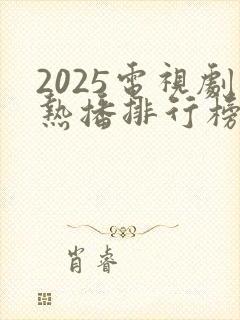 2025電視劇
熱播排行榜
肖睿